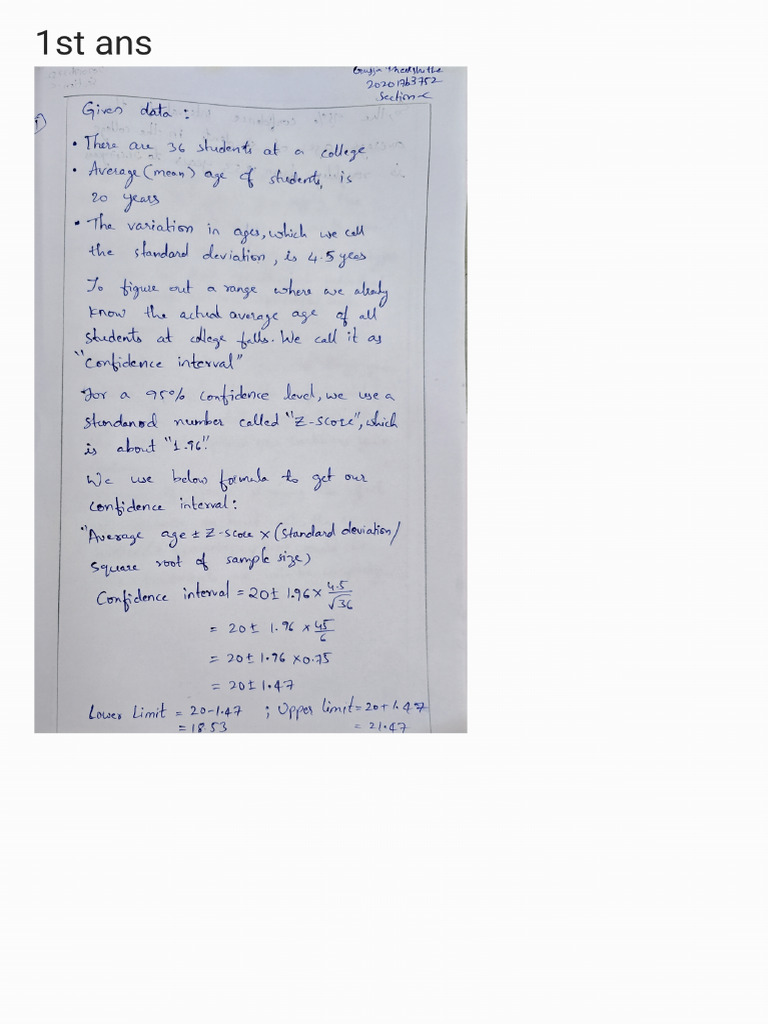 1st ans
20201763752
Section-C
1)
Given data :
• There are 36 students at a college
• Average (mean) age of students, is
20 years
• The variation in ages, which we call
the standard deviation, is 4.5 yeas
To figure out a range where we alealy
know the actual average age of all
students at college falls. We call it as
"Confidence interval"
For a 95% confidence level, we use a
standanod number called "Z-score", which
is about "1.96".
We use below formula to get our
confidence interval:
"Average age ± Z-score × (standard deviation/
square root of sample size)
Confidence interval = 20 ± 1.96 × 4.5/√36
= 20 ± 1.96 × 45/6
= 20 ± 1.96 × 0.75
= 20 ± 1.47
Lower Limit = 20-1.47 ; Upper limit = 20+1.47
= 18.53 = 21.47